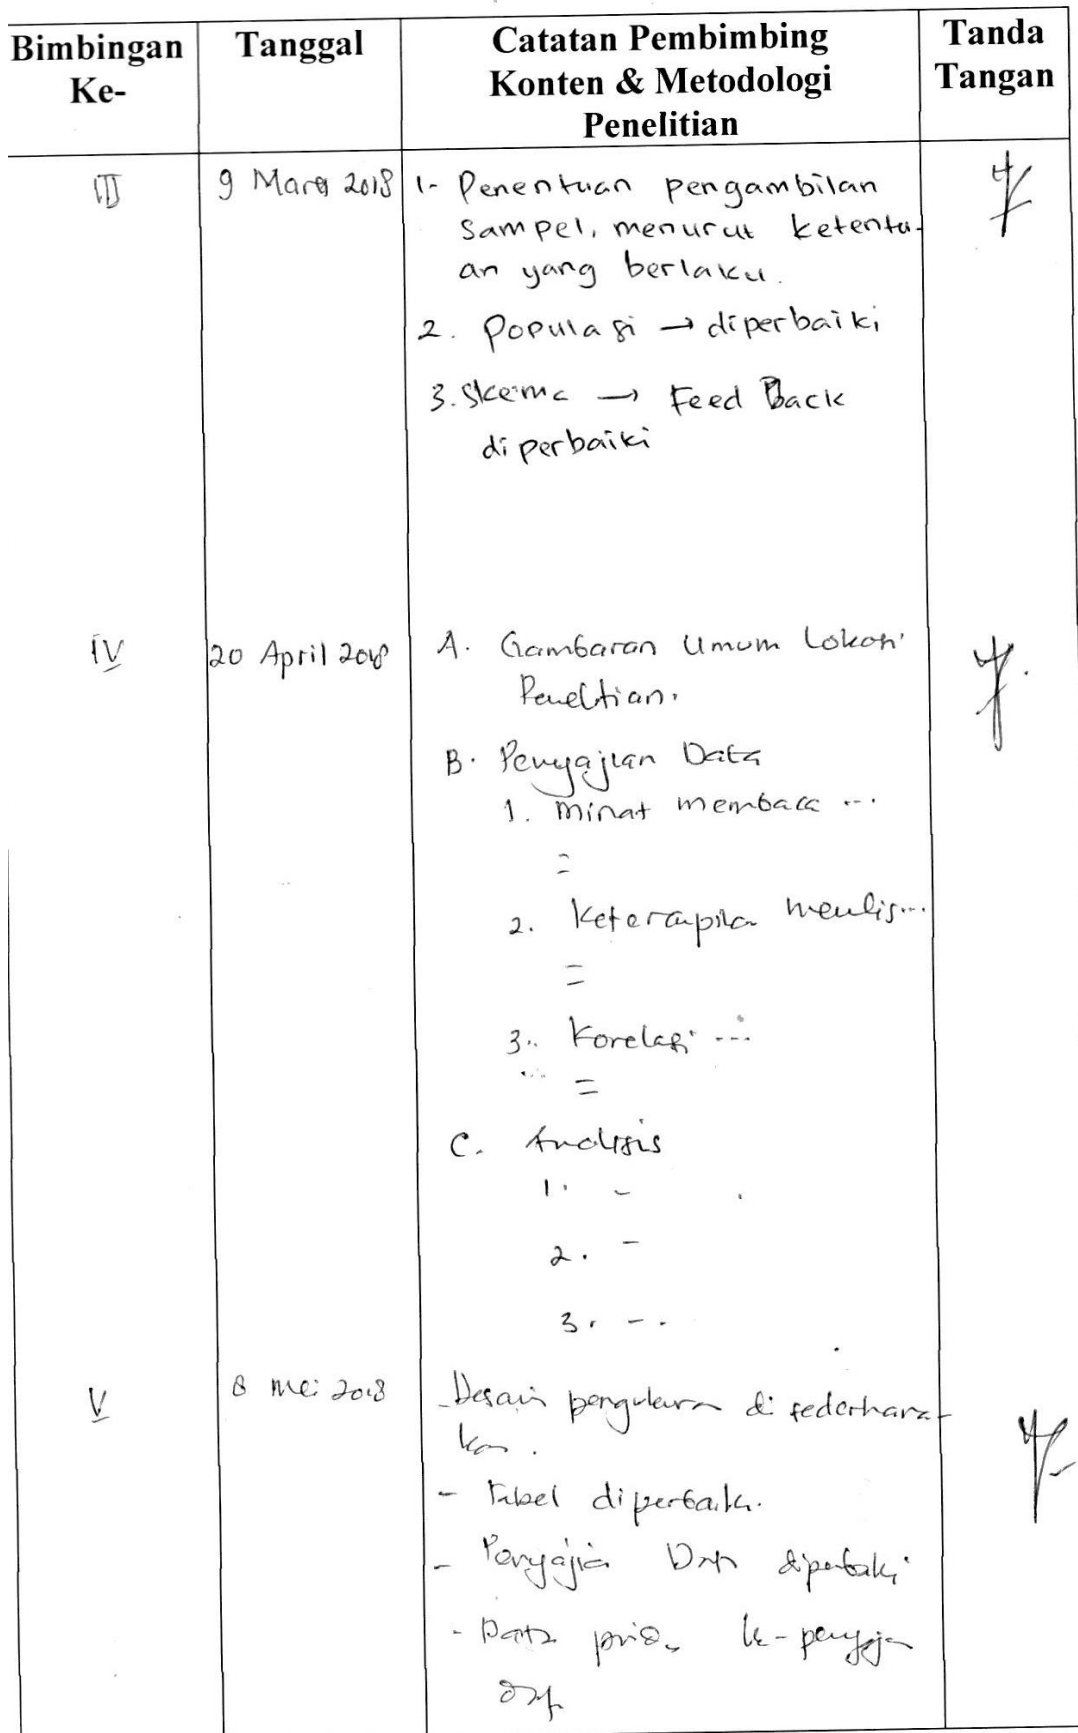 Bimbingan Ke-
Tanggal
Catatan Pembimbing
Konten & Metodologi
Penelitian
Tanda
Tangan
III
9 Maret 2018
1- Penentuan pengambilan
sampel, menurut ketentu-
an yang berlaku.
2. Populasi → diperbaiki
3. Skema → Feed Back
diperbaiki
IV
20 April 2018
A. Gambaran Umum Lokasi
Penelitian.
B. Penyajian Data
1. minat membaca ...
=
2. Keterampila menulis...
=
3. Korelasi ...
=
C. Analisis
1. -
2. -
3. - .
V
8 mei 2018
- Desain pengukura di sederhana-
kan.
- Tabel diperbaiki.
- Penyajia Data diperbaiki
- Data ke-penyaja